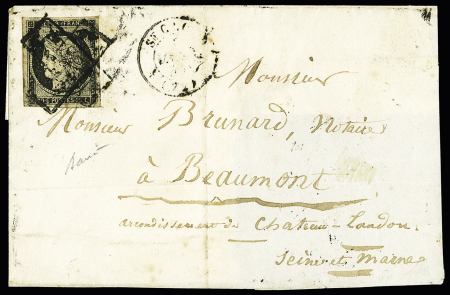 Monsieur
Monsieur Brunard, Notaire
à Beaumont
arrondissement de Chateau-Landon
Seine et Marne